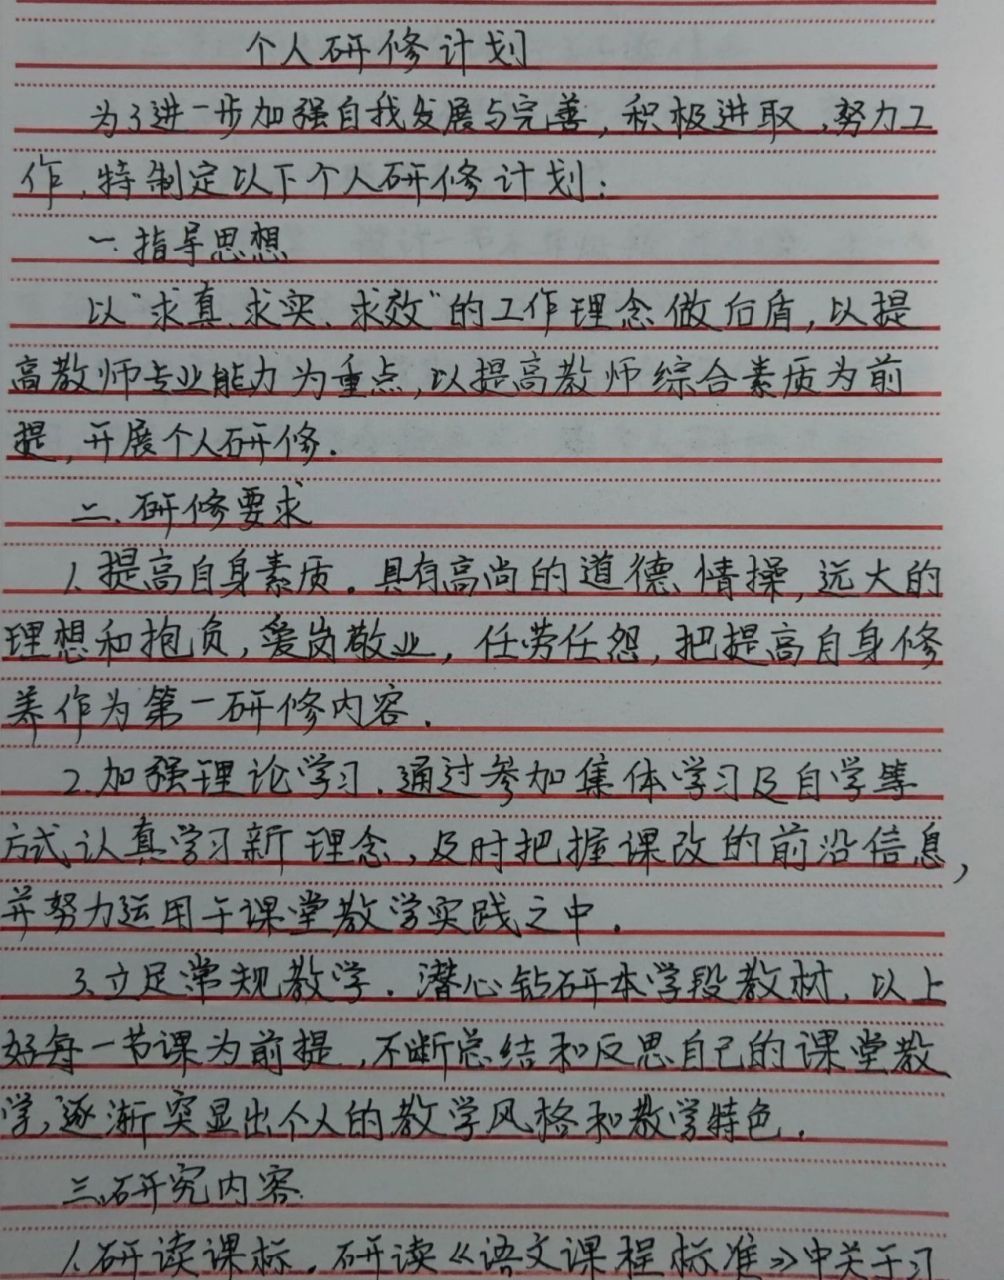 个人研修计划
为了进一步加强自我发展与完善,积极进取,努力工
作,特制定以下个人研修计划:
一.指导思想
以“求真、求实、求效”的工作理念做后盾,以提
高教师专业能力为重点,以提高教师综合素质为前
提,开展个人研修.
二、研修要求
1.提高自身素质。具有高尚的道德情操,远大的
理想和抱负,爱岗敬业,任劳任怨,把提高自身修
养作为第一研修内容.
2.加强理论学习.通过参加集体学习及自学等
方式认真学习新理念,及时把握课改的前沿信息,
并努力运用于课堂教学实践之中.
3、立足常规教学.潜心钻研本学段教材,以上
好每一节课为前提,不断总结和反思自己的课堂教
学,逐渐突显出个人的教学风格和教学特色.
三、研究内容
1.研读课标.研读《语文课程标准》中关于习